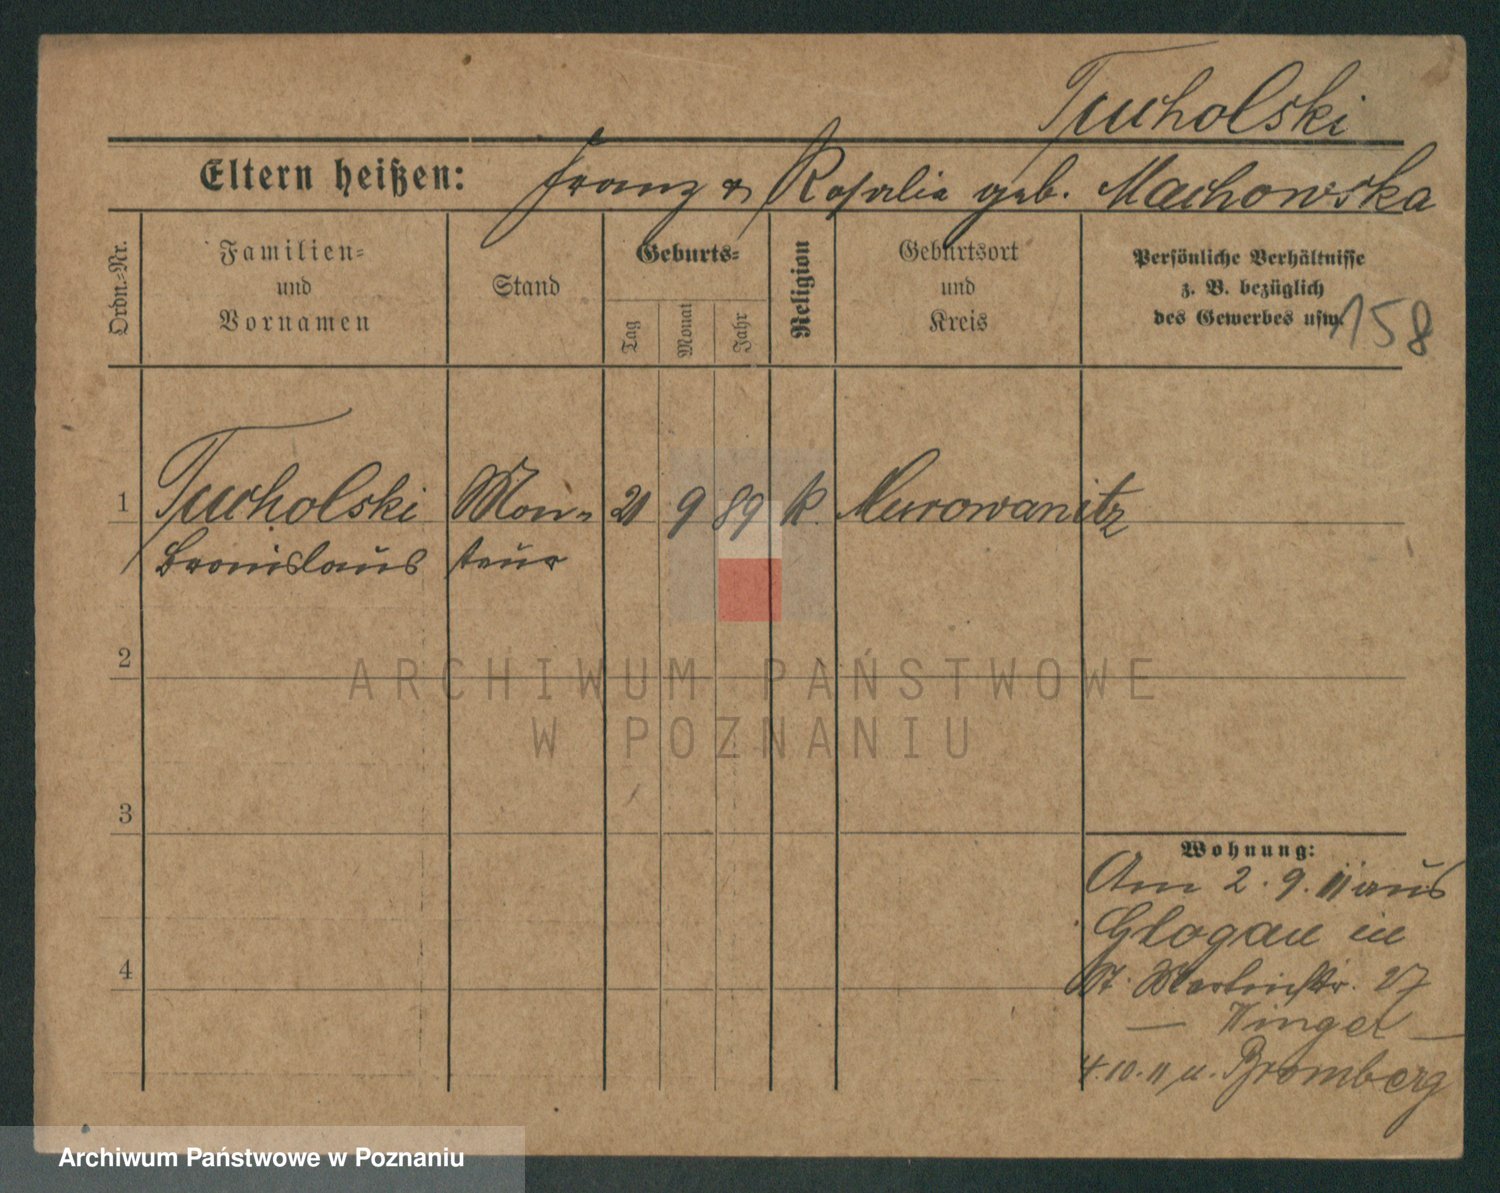 Tucholski
Eltern heißen: Franz & Rosalie geb. Machowska
Ordn.-Nr.
Familien-
und
Vornamen
Stand
Geburts-
Tag
Monat
Jahr
Religion
Geburtsort
und
Kreis
Persönliche Verhältnisse
z. B. bezüglich
des Gewerbes usw.
158
1 Tucholski Mon- 21 9 89 k. Murowanitz
Bronislaus teur
2
ARCHIWUM PAŃSTWOWE
W POZNANIU
3
Wohnung:
Am 2. 9. 11 aus
Glogau in
4
St. Martinstr. 27
— Winger —
4.10.11 n. Bromberg
Archiwum Państwowe w Poznaniu